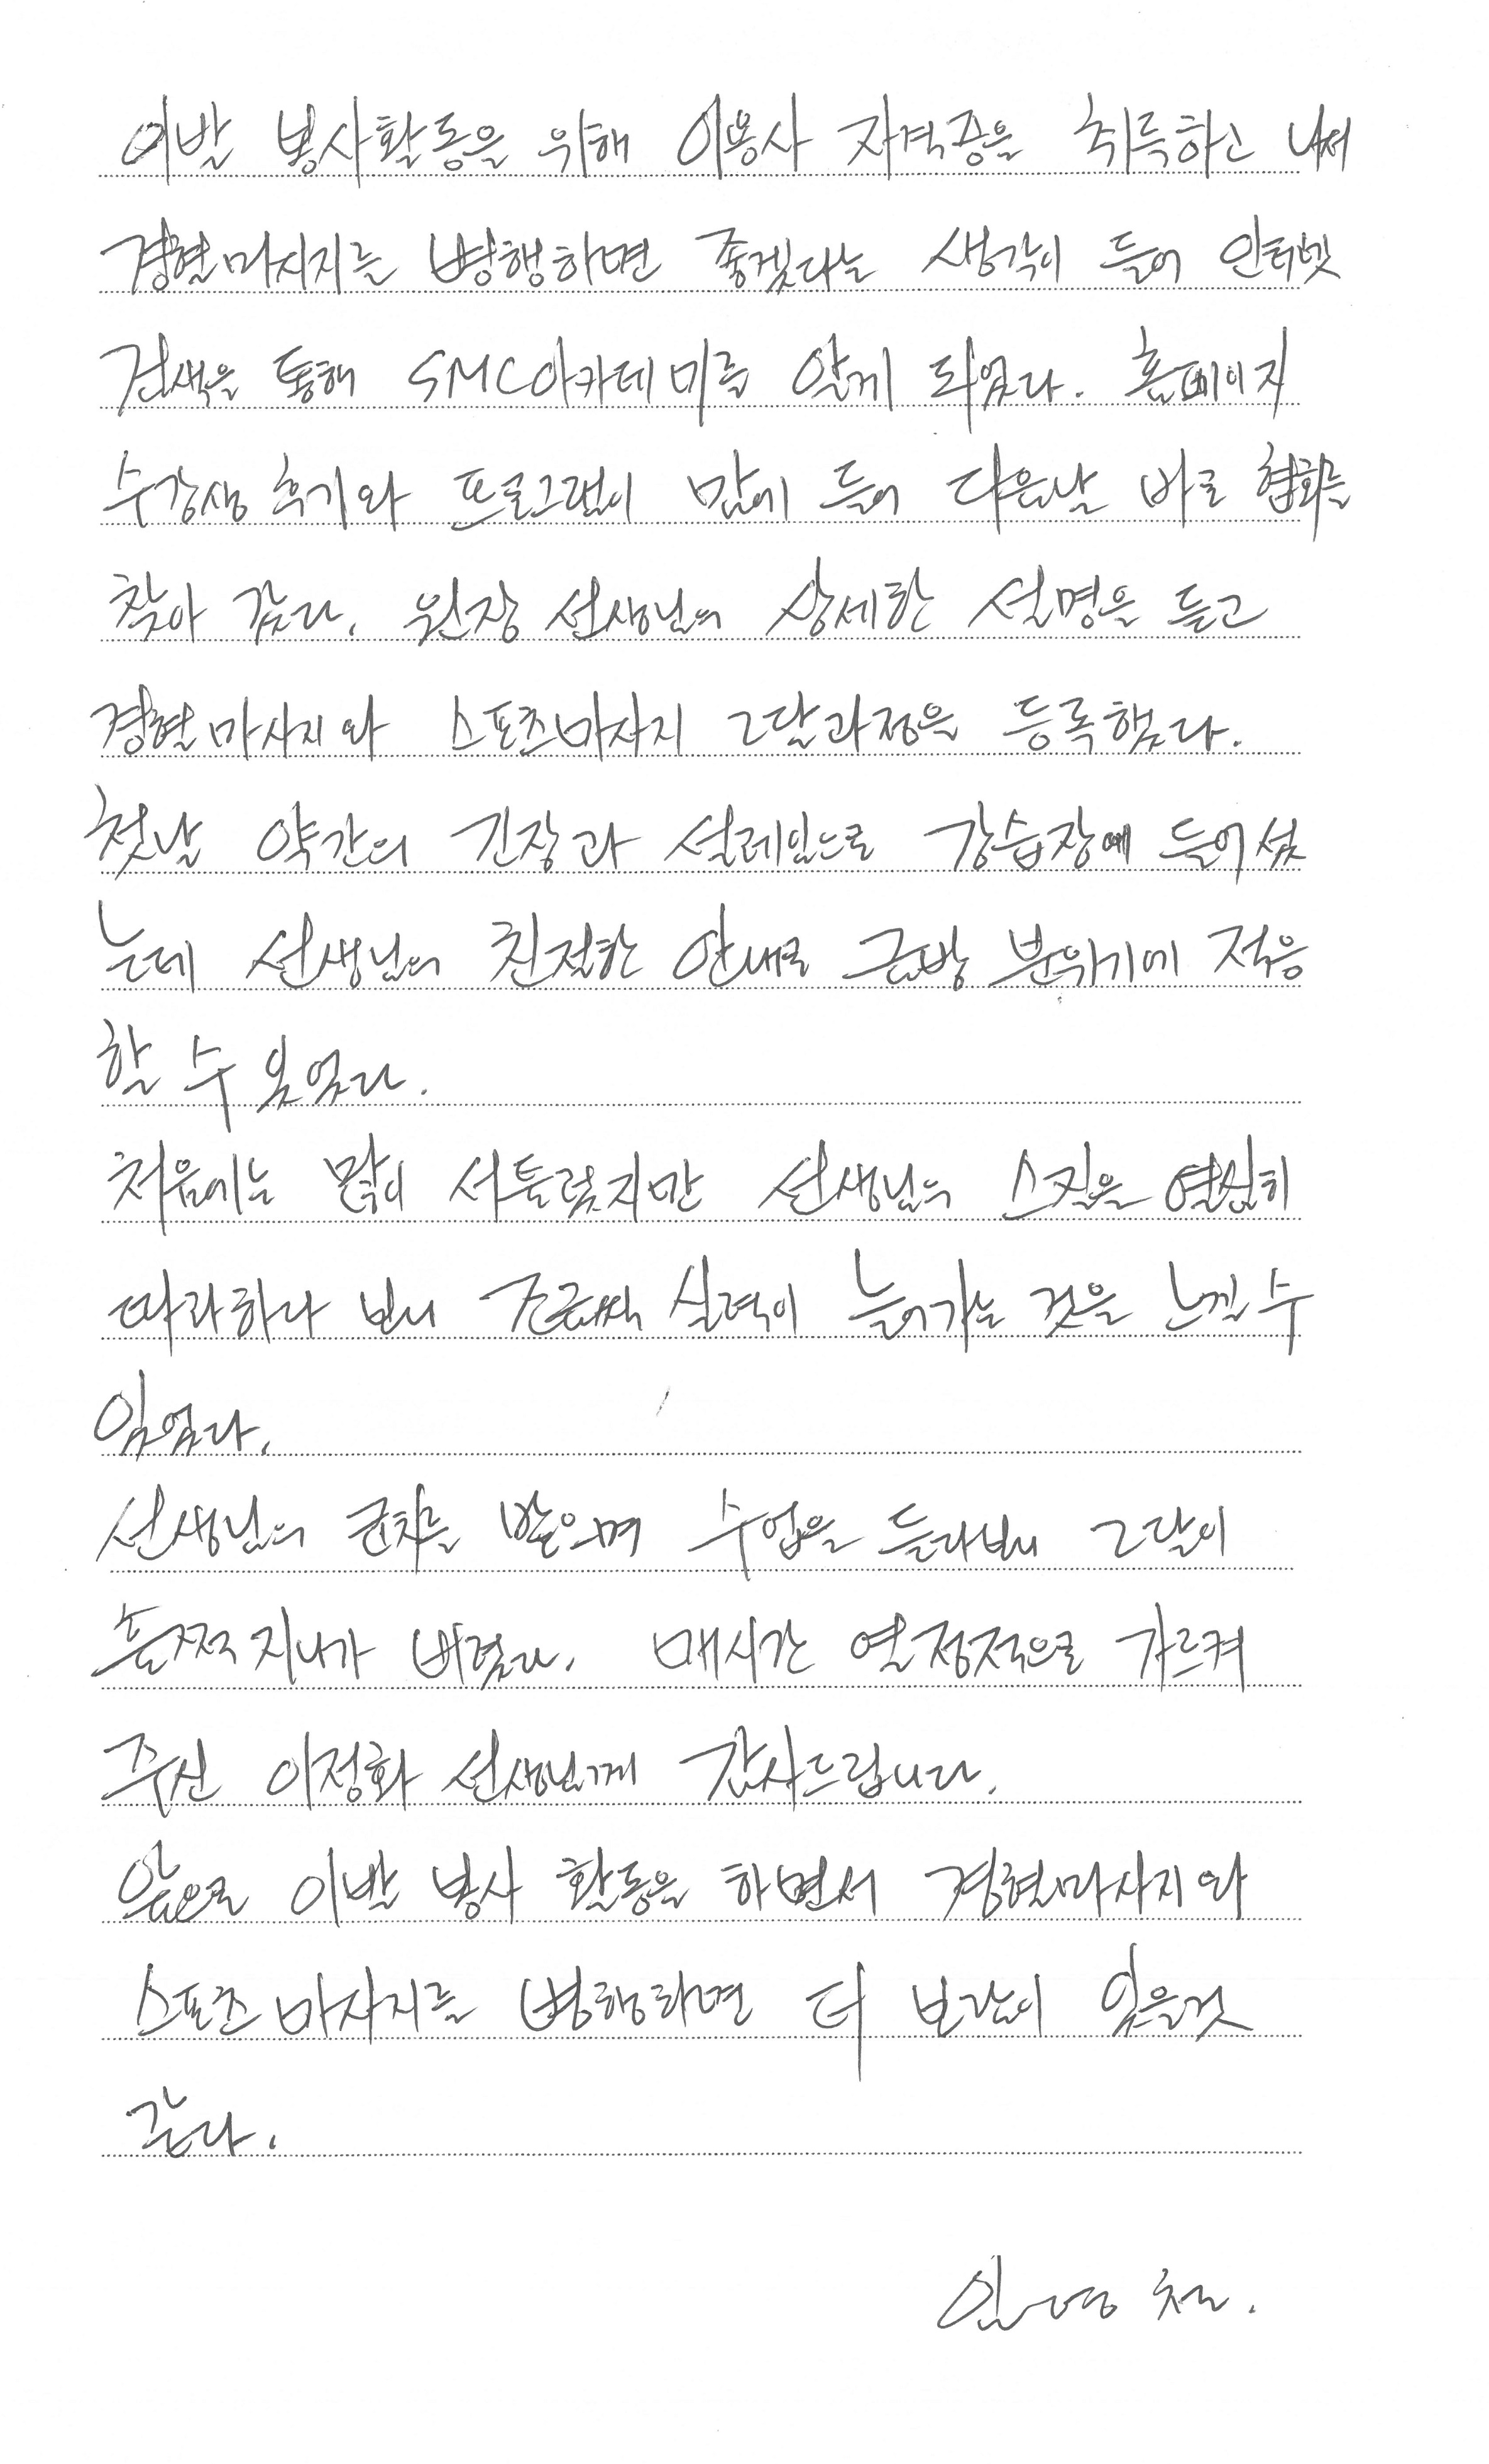 이발 봉사활동을 위해 이용사 자격증을 취득하고 나서
경혈마사지를 병행하면 좋겠다는 생각이 들어 인터넷
검색을 통해 SMC아카데미를 알게 되었다. 홈페이지
수강생 후기와 프로그램이 맘에 들어 다음날 바로 협회를
찾아 갔다. 원장 선생님의 상세한 설명을 듣고
경혈마사지와 스포츠마사지 2달과정을 등록했다.
첫날 약간의 긴장과 설레임으로 강습장에 들어섰
는데 선생님의 친절한 안내로 금방 분위기에 적응
할 수 있었다.
처음에는 많이 서툴렀지만 선생님의 스킬을 열심히
따라하다 보니 조금씩 실력이 늘어가는 것을 느낄 수
있었다.
선생님의 코치를 받으며 수업을 듣다보니 2달이
훌쩍 지나가 버렸다. 매시간 열정적으로 가르켜
주신 이정화 선생님께 감사드립니다.
앞으로 이발 봉사 활동을 하면서 경혈마사지와
스포츠마사지를 병행하면 더 보람이 있을것
같다.